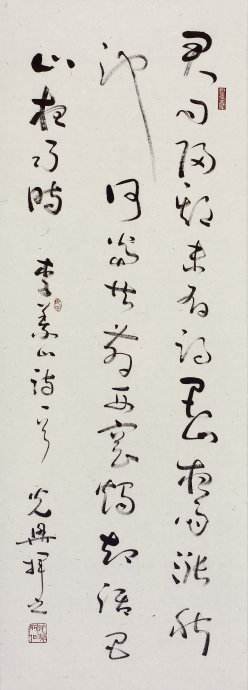 君問歸期未有期巴山夜雨漲秋
池何當共剪西窗燭却話巴
山夜雨時李義山詩一首揮之